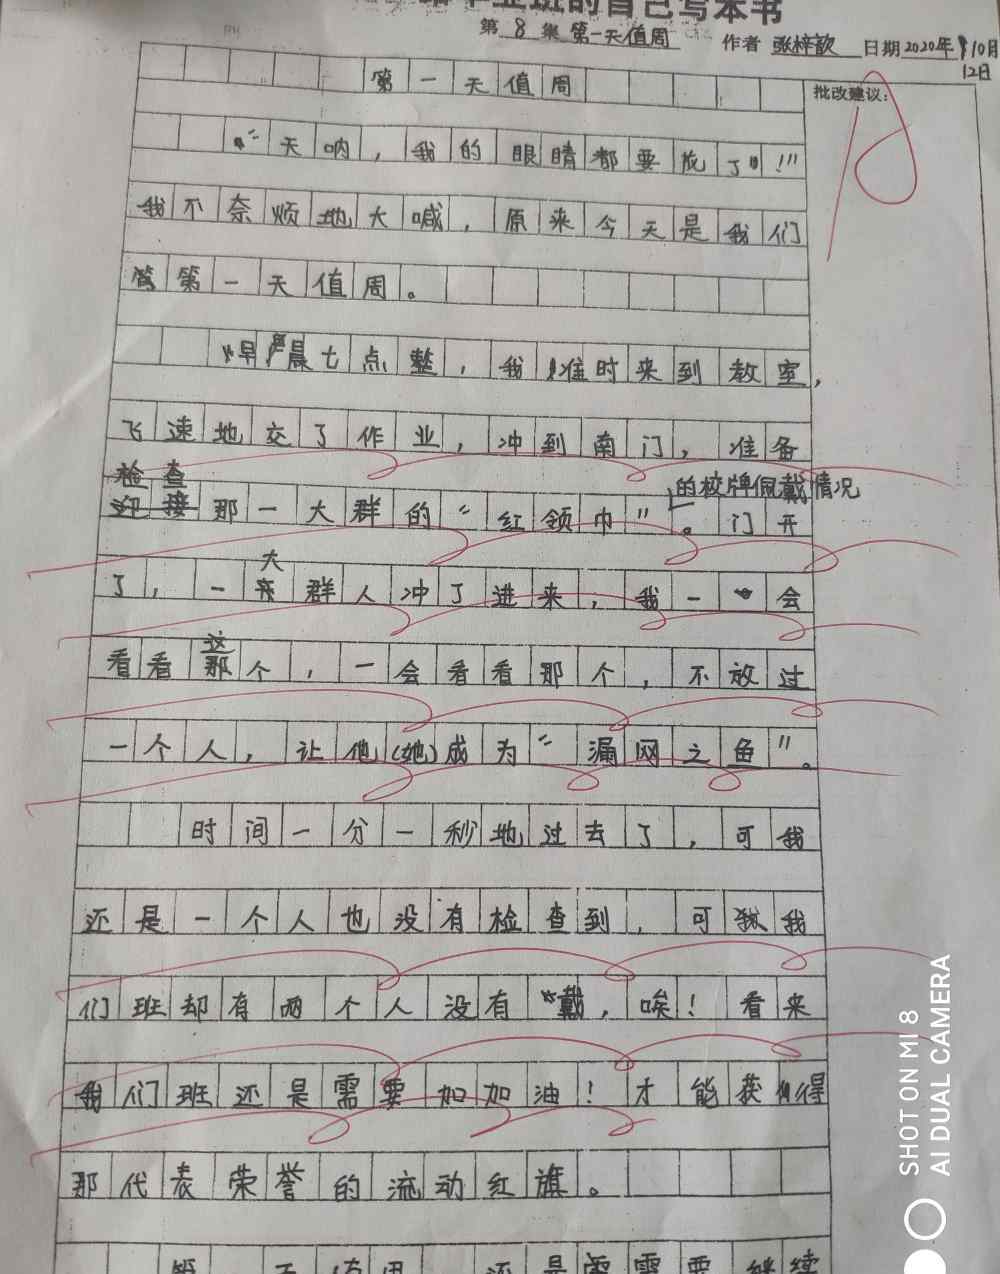 班的自己写本书
第 8 集 第一天值周 作者 张梓歆 日期2020年10月12日
批改建议：
第一天值周
“天呐，我的眼睛都要 了！”
我不奈烦地大喊，原来今天是我们
第一天值周。
早晨七点整，我准时来到教室，
飞速地交了作业，冲到南门，准备
检查
迎接那一大群的“红领巾”的校牌佩戴情况。门开
了，一大群人冲了进来，我一会
看看这个，一会看看那个，不放过
一个人，让他(她)成为“漏网之鱼”。
时间一分一秒地过去了，可我
还是一个人也没有检查到，可我
们班却有两个人没有戴，唉！看来
我们班还是需要加加油！才能获得
那代表荣誉的流动红旗。
SHOT ON MI 8
AI DUAL CAMERA